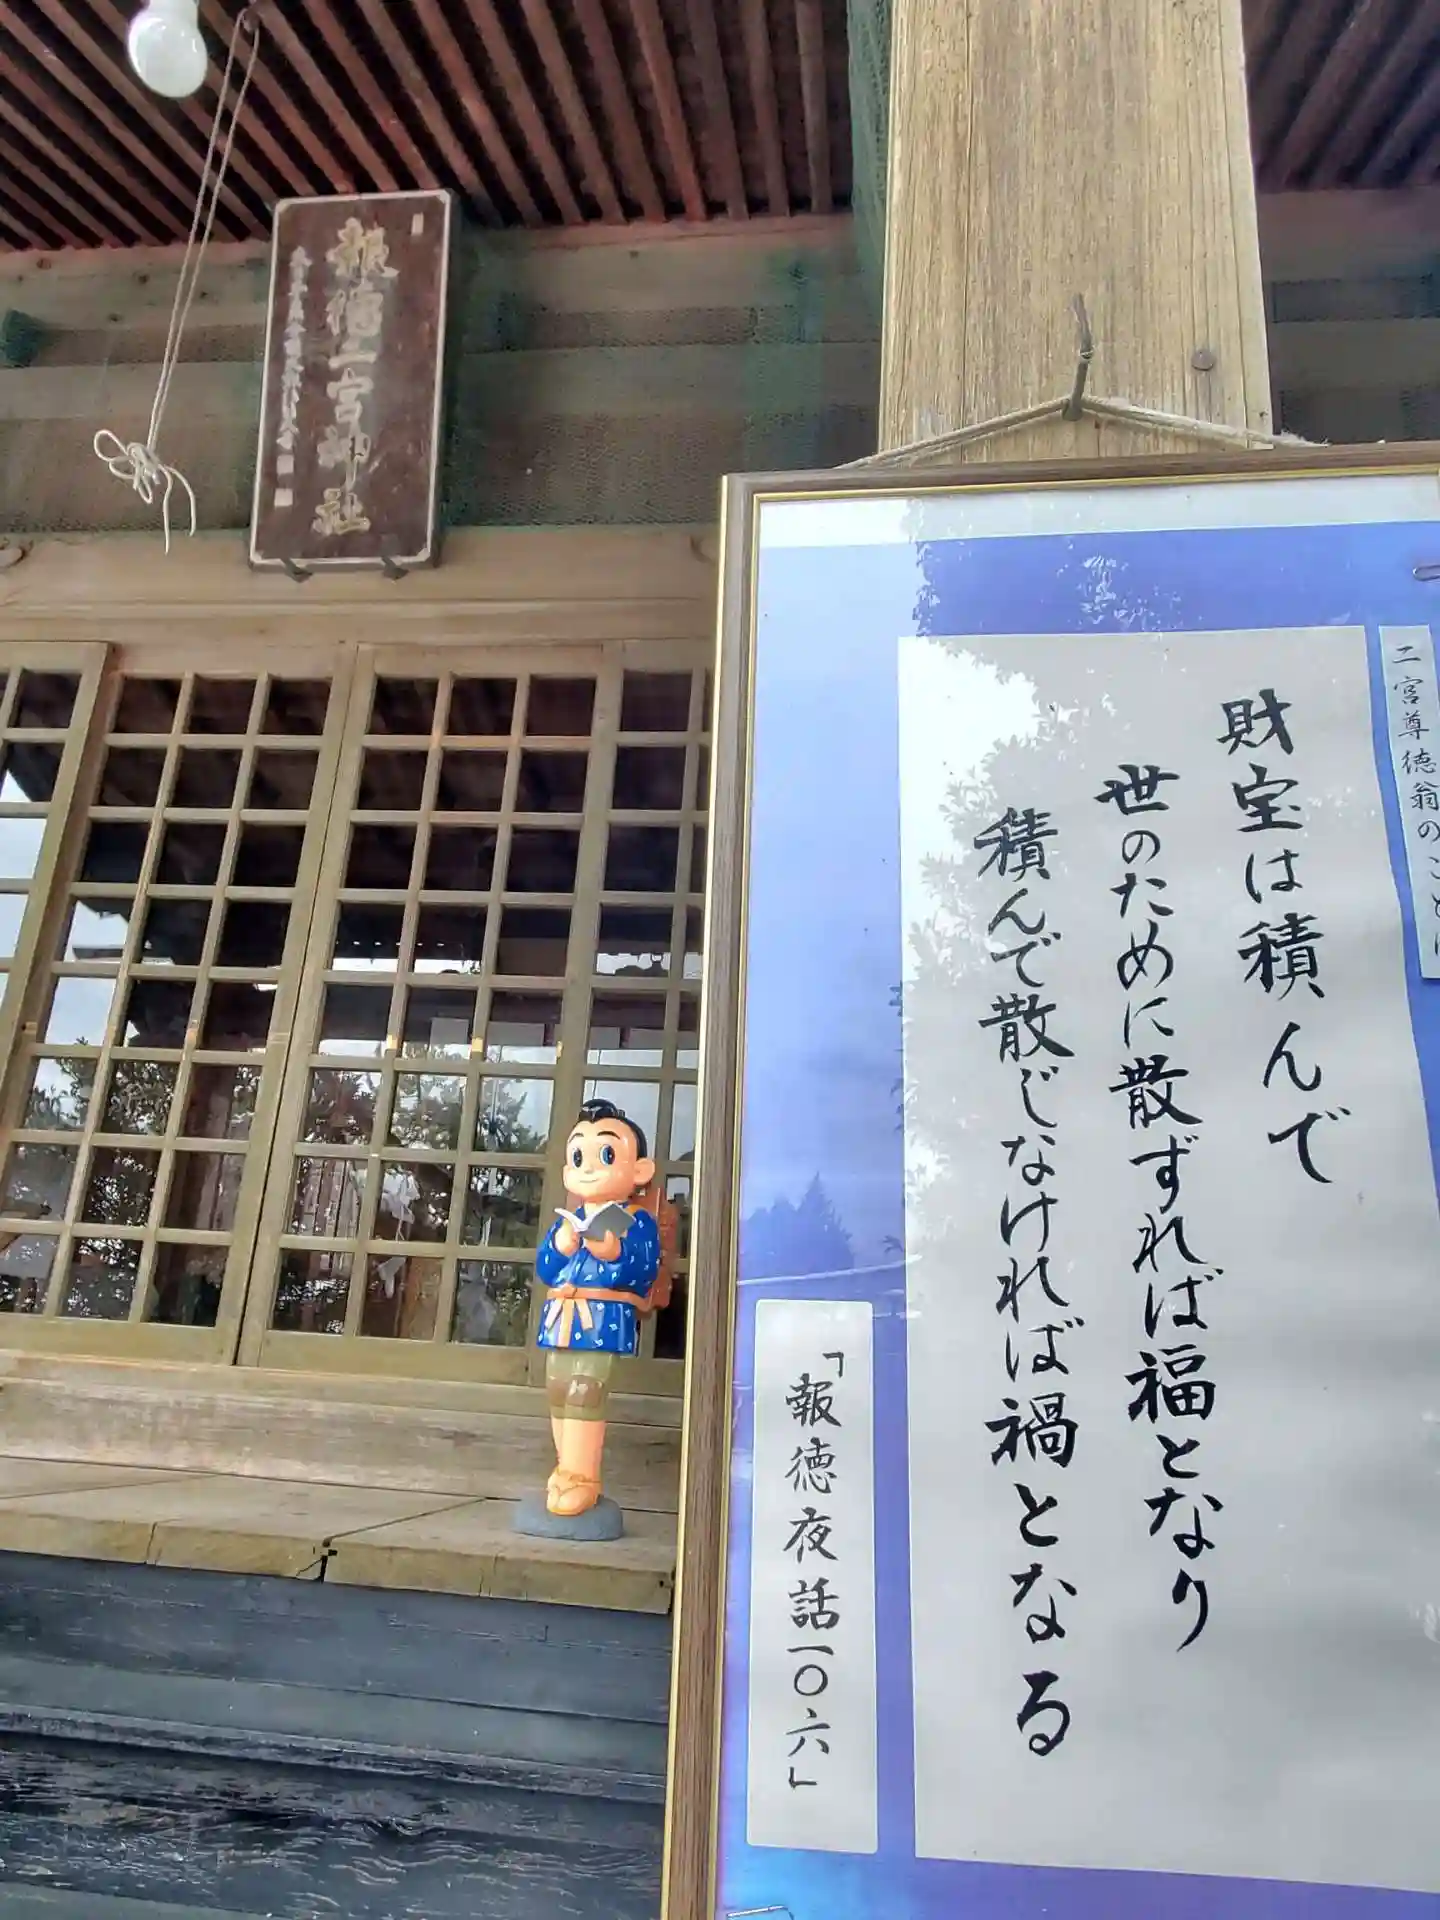 報徳二宮神社
二宮尊徳翁のことば
財宝は積んで
世のために散ずれば福となり
積んで散じなければ禍となる
「報徳夜話一〇六」